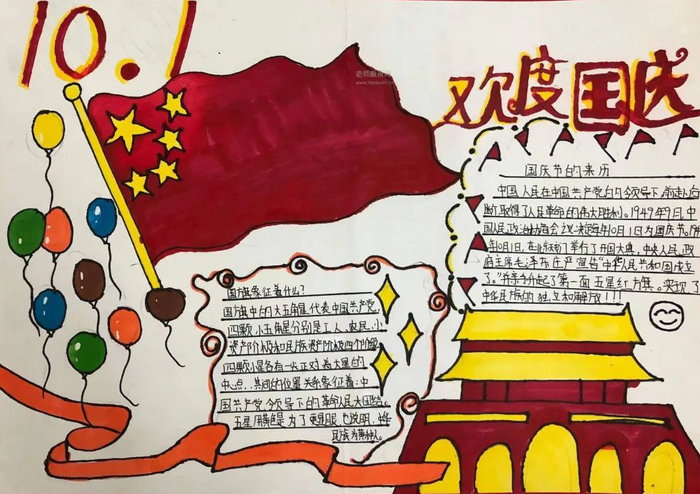 10.1
欢度国庆
国庆节的来历
中国人民在中国共产党的领导下,前赴后
断,取得了人民革命的伟大胜利。1949年9月,中
国人民政治协商会议,决定每年10月1日为国庆节。
年10月1日,在北京举行了开国大典,中央人民政
府主席毛泽东庄严宣告“中华人民共和国成立
了。”并亲手升起了第一面五星红旗。实现了
中华民族的独立和解放!!!
国旗象征着什么?
国旗中的大五角星,代表中国共产党,
四颗小五角星分别是工人,农民,小
资产阶级和民族资产阶级四个阶级
四颗小星各有一尖正对着大星的
中心点,其间的位置关系象征着:中
国共产党领导下的革命人民大团结。
五星用黄色是为了更显眼,也说明,中华
民族为黄种人。